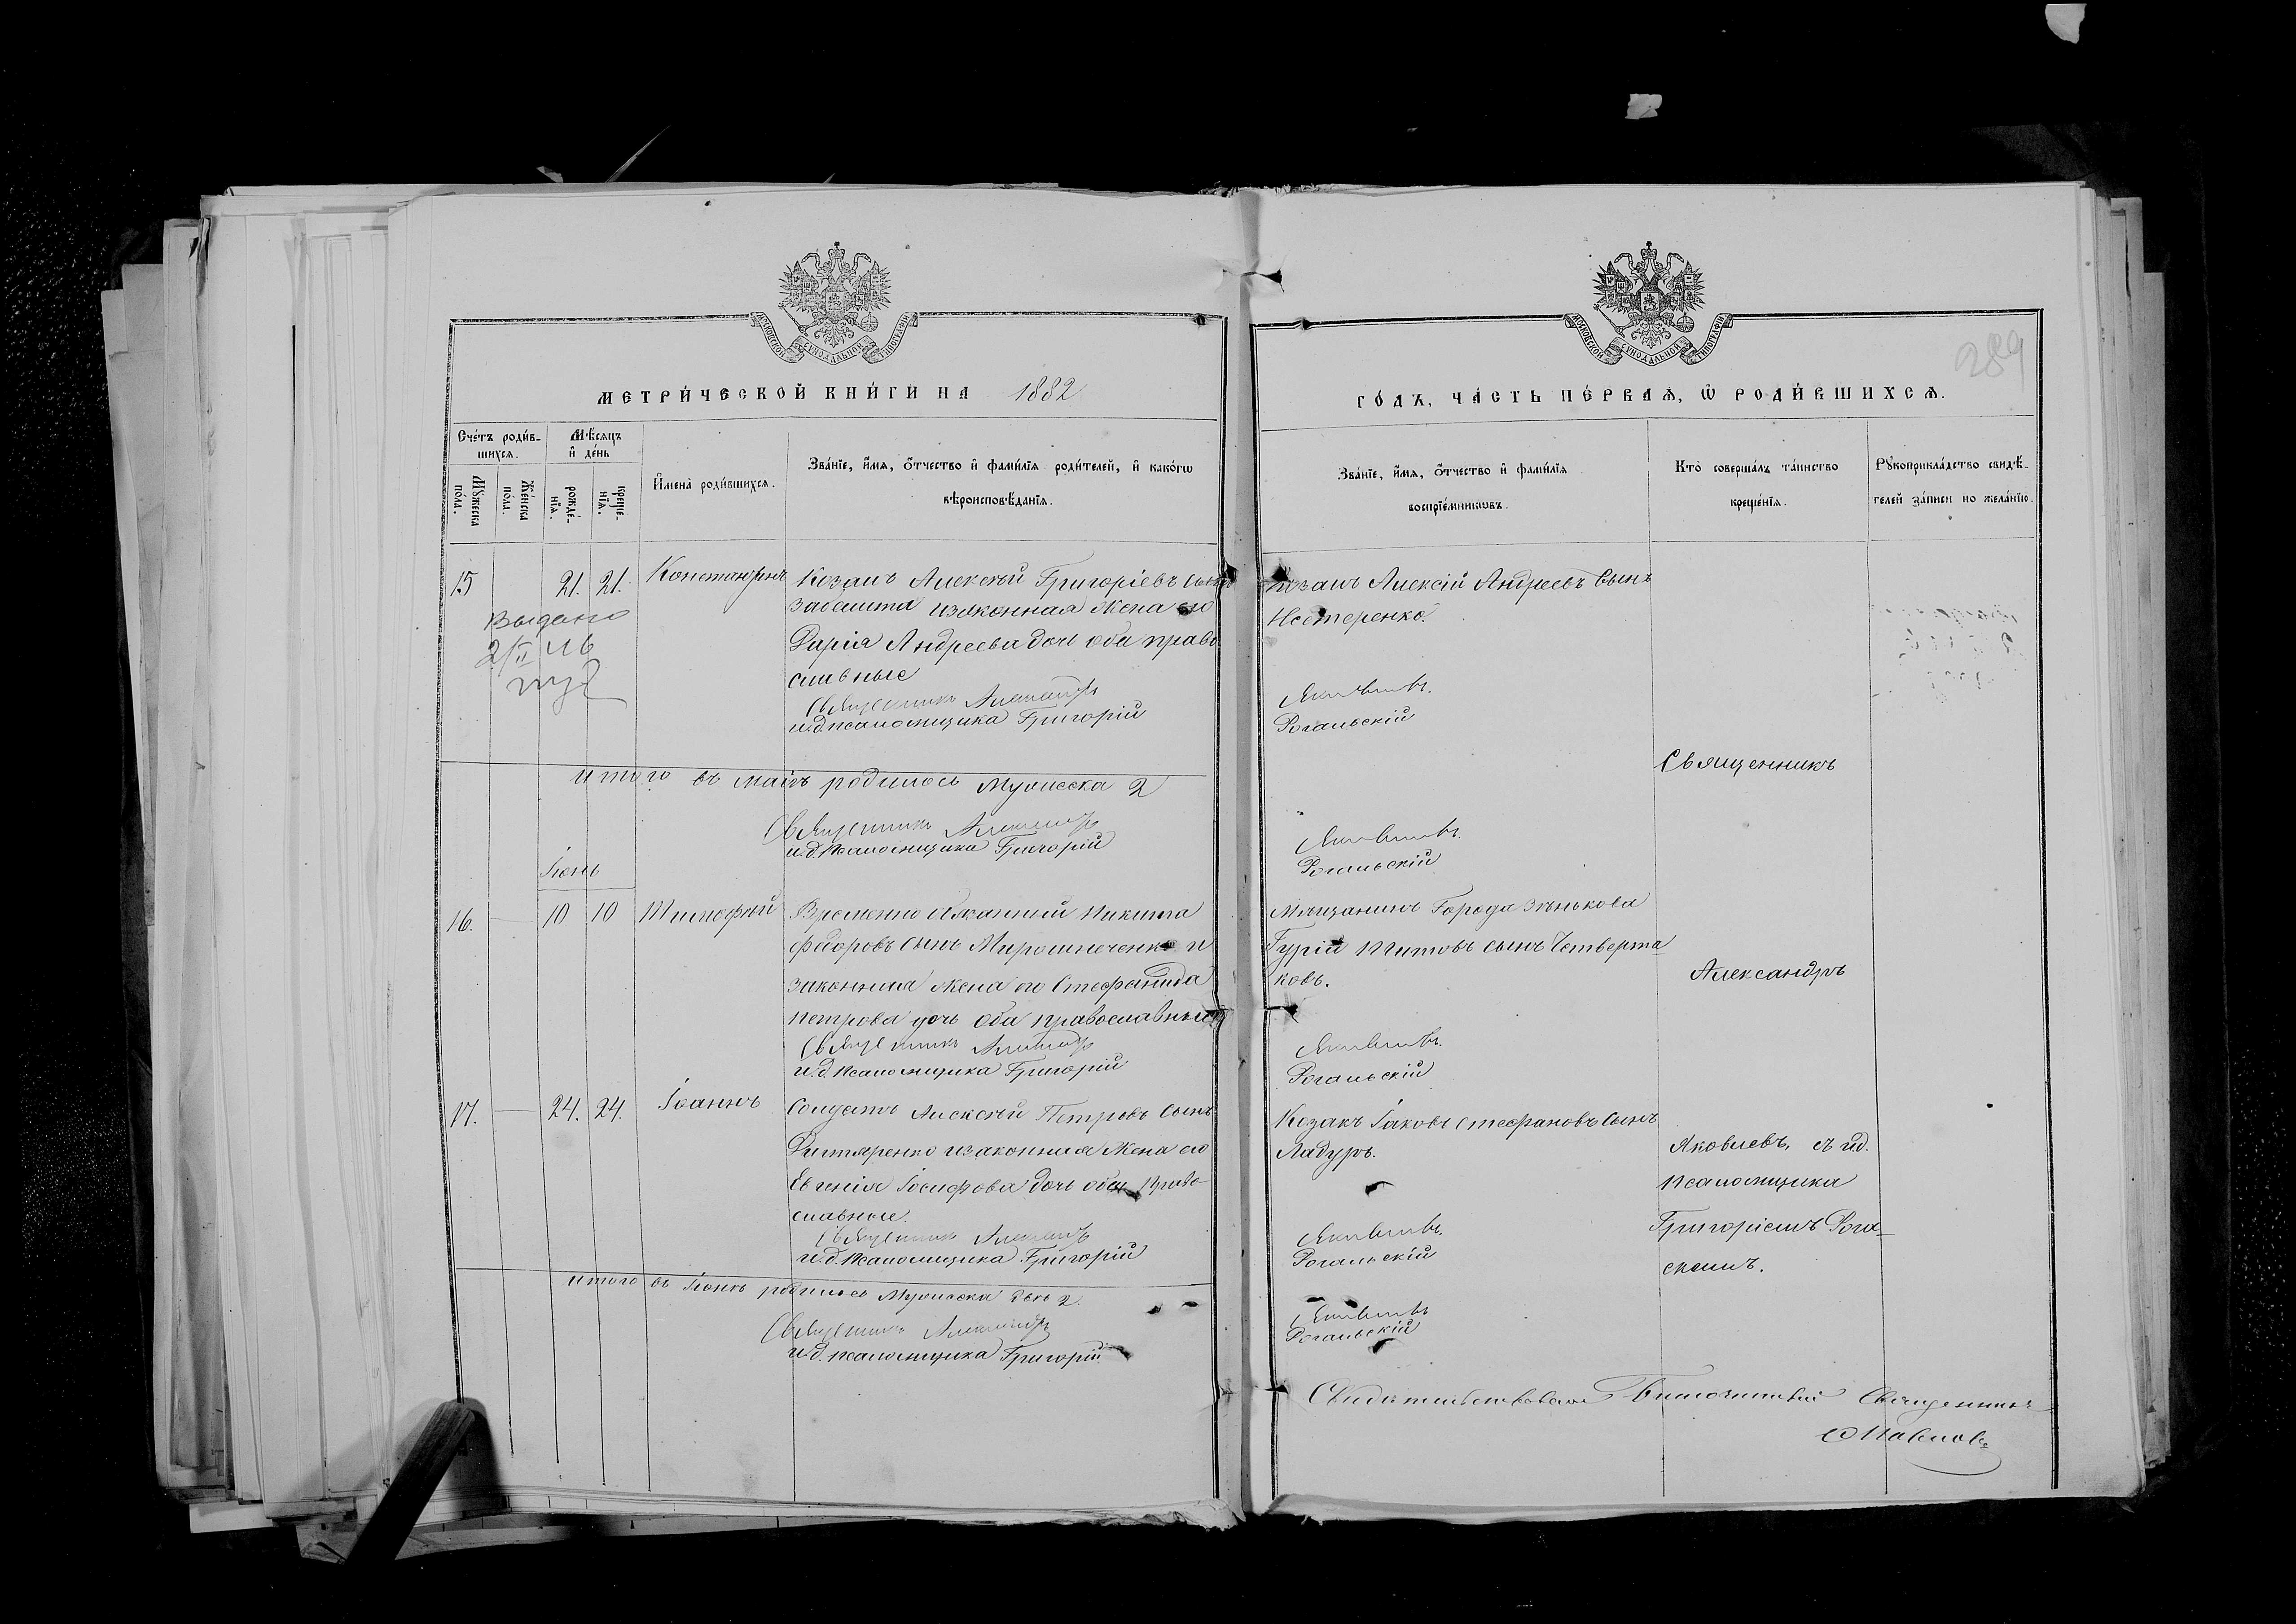 МОСКОВСКОЙ СУНОДАЛЬНОЙ ТИПОГРАФІИ
МЕТРИ́ЧЕСКОЙ КНИ́ГИ НА 1882
Сче́тъ роди́в-
шихсѧ.
Мѣ́сѧцъ
и҆ де́нь
Мꙋ́жеска
по́ла.
Же́нска
по́ла.
рожде́-
нїѧ.
креще́-
нїѧ.
И҆мена̀ роди́вшихсѧ.
Зва́нїе, и҆́мѧ, ѻ҆́тчество и҆ фами́лїѧ роди́телей, и҆ како́гѡ
вѣроисповѣ́данїѧ.
15 21. 21. Константинъ
Козакъ Алексѣй Григоріевъ сынъ
Забашта изаконная жена его
Дарія Андреева дочь оба право
славные
Священникъ Александръ
и.д. псаломщика Григорій
Выдано
2/II 16
итого въ маѣ родилось мужеска 2
Священникъ Александръ
и.д. псаломщика Григорій
Іюнь
16. 10 10 Тимофей
Временно обязанный Никита
Федоровъ сынъ Мирошниченко и
законная жена его Стефанида
Петрова дочь оба православные
Священникъ Александръ
и.д. псаломщика Григорій
17. 24. 24. Іоаннъ
Солдатъ Алексѣй Петровъ сынъ
изаконная жена его
Евгенія Іосифова дочь оба право-
славные.
Священникъ Александръ
и.д. псаломщика Григорій
итого въ Іюнѣ родилось мужеска 2.
Священникъ Александръ
и.д. псаломщика Григорій
МОСКОВСКОЙ СУНОДАЛЬНОЙ ТИПОГРАФІИ
289
ГО́ДЪ, ЧА́СТЬ ПЕ́РВАѦ, Ѡ҆ РОДИ́ВШИХСѦ.
Зва́нїе, и҆́мѧ, ѻ҆́тчество и҆ фами́лїѧ
воспрїе́мникѡвъ.
Кто̀ соверша́лъ та́инство
креще́нїѧ.
Рꙋкоприкла́дство свидѣ́-
телей за́писи по жела́нїю.
Козакъ Алексій Андреевъ сынъ
Нестеренко.
Яковлевъ.
Рогальскій
Священникъ
Яковлевъ.
Рогальскій
Мѣщанинъ Города Зѣнькова
Гурій Титовъ сынъ Четверта-
ковъ.
Александръ
Яковлевъ.
Рогальскій
Козакъ Іаковъ Стефановъ сынъ
Ладуръ.
Яковлевъ, съ и.д.
псаломщика
Григоріемъ Рога-
скимъ.
Яковлевъ.
Рогальскій
Яковлевъ
Рогальскій
Свидѣтельствовалъ Благочинный Священникъ
Павловъ